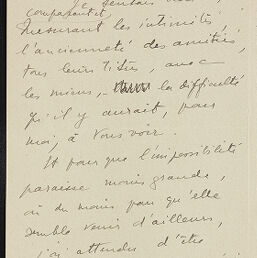 je sentais
comparant et,
mesurant les intimités,
l'ancienneté des amitiés,
tous leurs titres, avec
les miens, la difficulté
qu'il y aurait, pour
moi, à vous voir.
Et pour que l'impossibilité
paraisse moins grande,
où du moins pour qu'elle
semble venir d'ailleurs,
j'ai attendu d'être